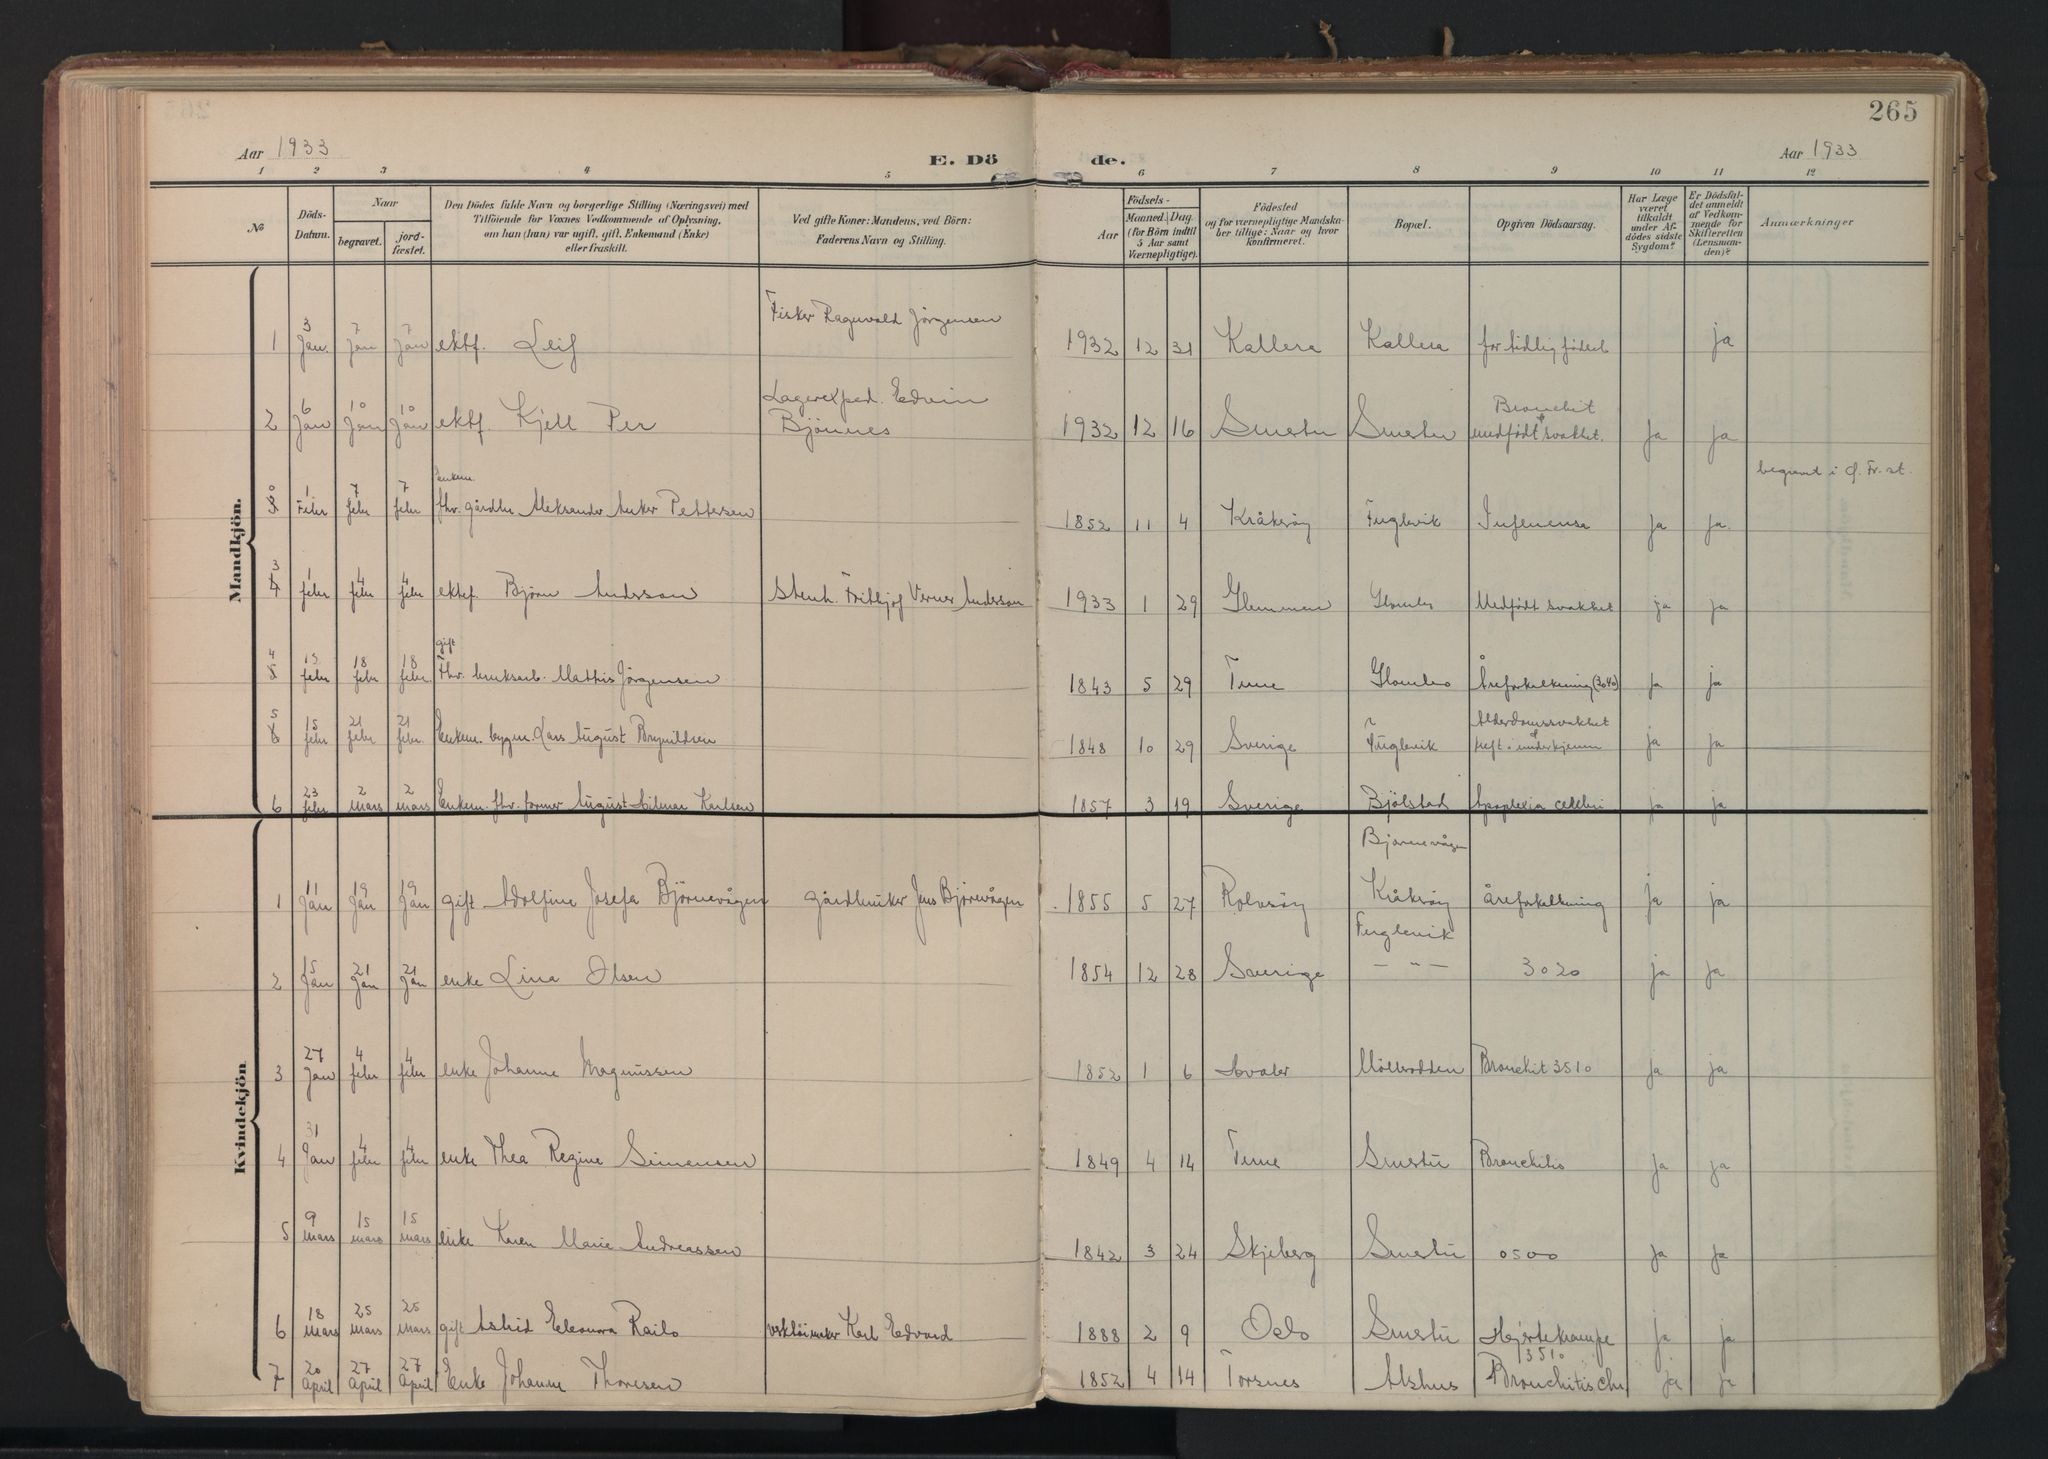 265
Aar 1933 E. Dö de. Aar 1933
1 2 3 4 5 6 7 8 9 10 11 12
№
Döds-Datum.
Naar
begravet.
jord-fæstet.
Den Dödes fulde Navn og borgerlige Stilling (Næringsvei) med
Tilföiende for Voxnes Vedkommende af Oplysning,
om han (hun) var ugift, gift, Enkemand (Enke)
eller fraskilt.
Ved gifte Koner: Mandens, ved Börn:
Faderens Navn og Stilling.
Födsels-
Aar
Maaned. Dag.
(for Börn indtil
5 Aar samt
Værnepligtige).
Födested
og for værnepligtige Mandska-
ber tillige: Naar og hvor
konfirmeret.
Bopæl.
Opgiven Dödsaarsag.
Har Læge
været
tilkaldt
under Af-
dödes sidste
Sygdom?
Er Dödsfal-
det anmeldt
af Vedkom-
mende for
Skifteretten
(Lensman-
den)?
Anmærkninger
Mandkjön.
1 3 Jan. 7 Jan 7 Jan ektf. Leif Fisker Ragnvald Jörgensen 1932 12 31 Kallera Kallera for tidlig födsel ja
2 6 Jan 10 Jan 10 Jan ektf. Kjell Per Lagerexped. Edvin Björnes 1932 12 16 Smertu Smertu Bronchit & medfödt svakhet. ja ja
0 3 1 Febr 7 febr 7 febr enkem. fhv. gårdbr Aleksander Anker Pettersen 1852 11 4 Kråkröy Fuglevik Influensa ja ja begravd i Fr.st.
3 4 1 febr 4 febr 4 febr ektef. Björn Andersson Stenh. Frithjof Verner Andersson 1933 1 29 Glemmen Glombo Medfödt svakhet ja ja
4 5 15 febr 18 febr 18 febr. gift Fhv. bruksarb. Mathis Jörgensen 1843 5 29 Tune Glombo Åreforkalkning (3040) ja ja
5 6 15 febr 21 febr 21 febr. Enkem. bygm. Lars August Brynildsen 1848 10 29 Sverige Fuglevik Alderdomssvakhet & kreft i underkjeven ja ja
6 23 febr 2 mars 2 mars Enkem. fhv. former August Hilmar Karlsen 1857 3 19 Sverige Bjölstad Apoplexia cerebri ja ja
Kvindekjön
1 11 Jan 19 Jan 19 Jan gift Adolfine Josefa Björnevågen gårdbruker Jens Björnevågen 1855 5 27 Rolvsöy Björnevågen Kråkröy åreforkalkning ja ja
2 15 Jan 21 Jan 21 Jan enke Lina Olsen 1854 12 28 Sverige Fuglevik — " — 3020 ja ja
3 27 Jan 4 febr 4 febr enke Johanne Magnussen 1852 1 6 Hvaler Möllerodden Bronchit 3510 ja ja
4 31 Jan 4 febr 4 febr enke Thea Regine Simensen 1849 4 14 Tune Smertu Bronchitis ja ja
5 9 mars 15 mars 15 mars enke Karen Marie Andreassen 1842 3 24 Skjeberg Smertu 0500 ja ja
6 18 mars 25 mars 25 mars gift Astrid Eleonora Railo Karl Edvard 1888 2 9 Oslo Smertu Hjertekrampe ja ja
7 20 April 27 April 27 April Enke Johanne Thoresen 1852 4 14 Torsnes Alshus 3510 Bronchitis chr ja ja